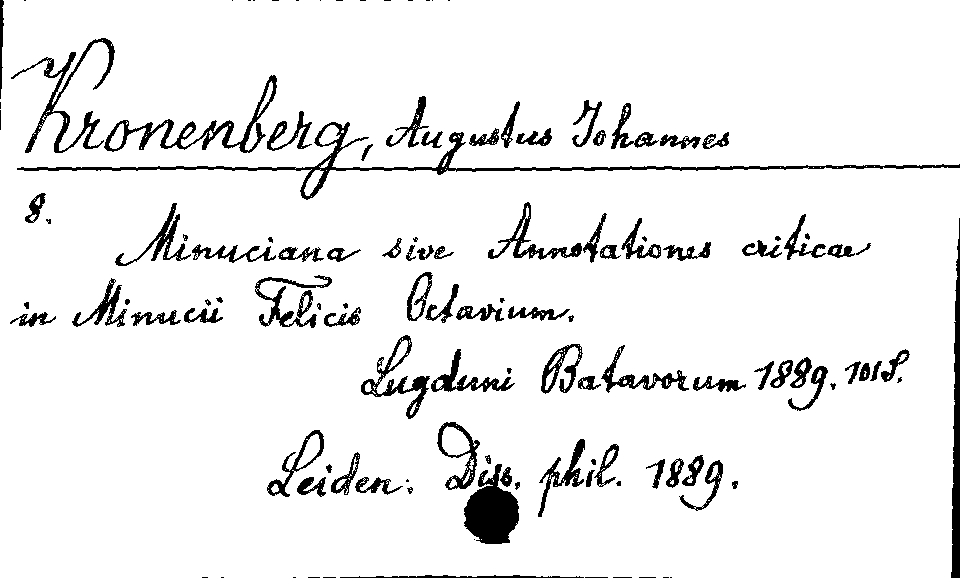 Kronenberg, Augustus Johannes
8.
Minuciana sive Annotationes criticae
in Minucii Felicis Octavium.
Lugduni Batavorum 1889. 101 S.
Leiden. Diss. phil. 1889.